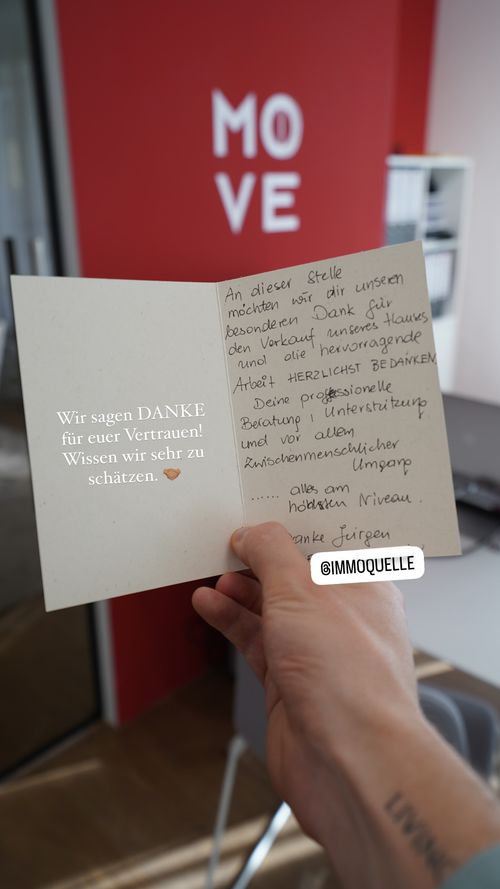 MO
VE
An dieser Stelle
möchten wir dir unseren
besonderen Dank für
den Verkauf unseres Hauses
und die hervorragende
Arbeit HERZLICHST BEDANKEN
Deine professionelle
Beratung, Unterstützung
und vor allem
Zwischenmenschlicher
Umgang
...... alles am
höchsten Niveau.
Danke Jürgen
Wir sagen DANKE
für euer Vertrauen!
Wissen wir sehr zu
schätzen. 🤝
@IMMOQUELLE
LIVING